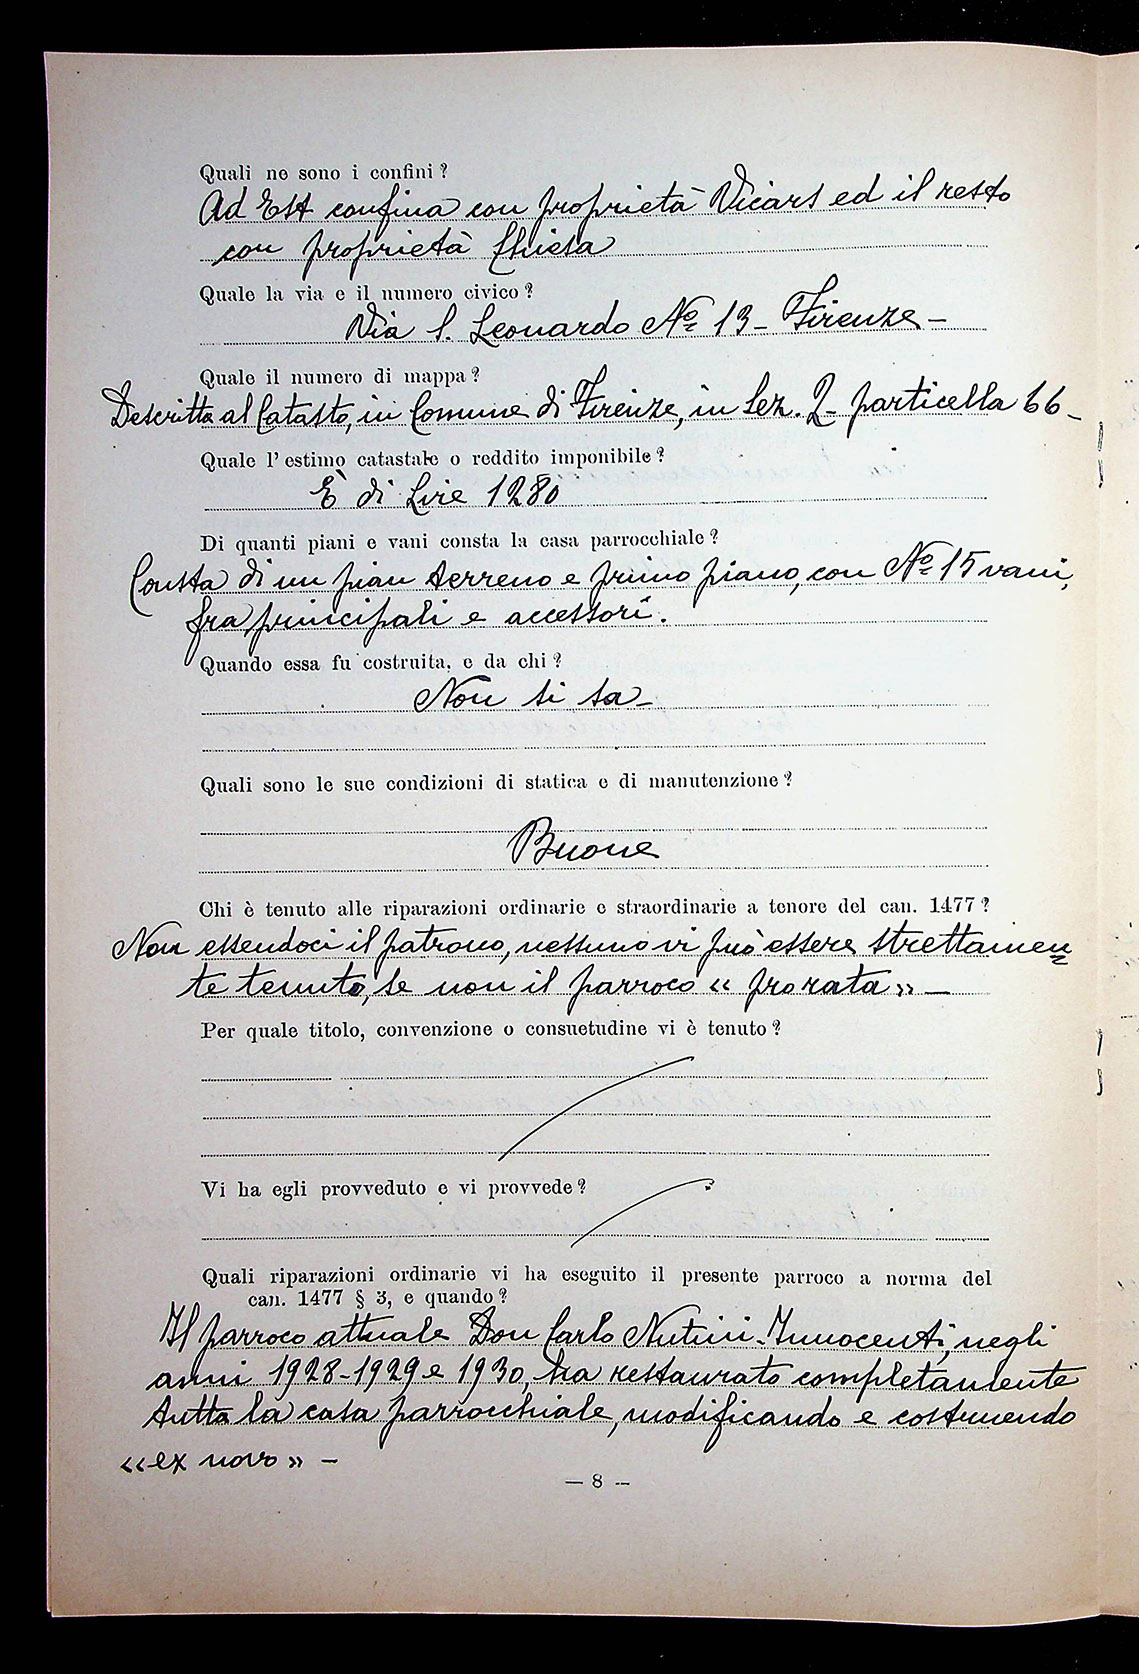 Quali ne sono i confini?
Ad Est confina con proprietà Vicars ed il resto
con proprietà Chiesa
Quale la via e il numero civico?
Via S. Leonardo Nº 13 - Firenze -
Quale il numero di mappa?
Descritta al Catasto, in Comune di Firenze, in Sez. Q - particella 66 -
Quale l'estimo catastale o reddito imponibile?
È di Lire 1280
Di quanti piani e vani consta la casa parrocchiale?
Consta di un pian terreno e primo piano, con Nº 15 vani,
fra principali e accessori.
Quando essa fu costruita, e da chi?
Non si sa -
Quali sono le sue condizioni di statica e di manutenzione?
Buone
Chi è tenuto alle riparazioni ordinarie e straordinarie a tenore del can. 1477?
Non essendoci il patrono, nessuno vi può essere strettamen=
te tenuto, se non il parroco « pro rata » -
Per quale titolo, convenzione o consuetudine vi è tenuto?
Vi ha egli provveduto e vi provvede?
Quali riparazioni ordinarie vi ha eseguito il presente parroco a norma del
can. 1477 § 3, e quando?
Il parroco attuale Don Carlo Nutini-Innocenti, negli
anni 1928-1929 e 1930, ha restaurato completamente
tutta la casa parrocchiale, modificando e costruendo
« ex novo » -
— 8 —